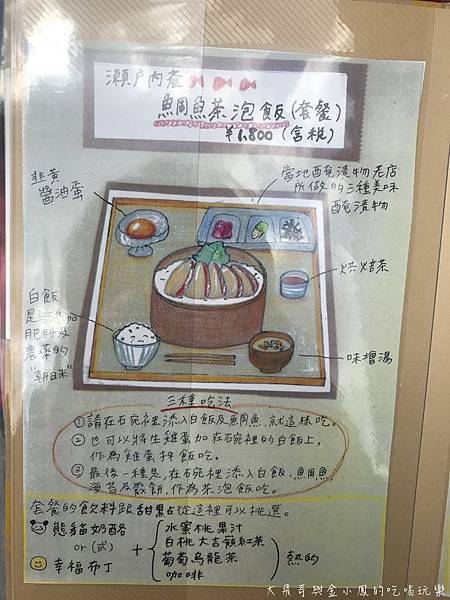 瀨戶內產
鯛魚茶泡飯(套餐)
¥1,800(含稅)
韭黃
醬油蛋
當地醃漬物老店
所做的三種美味
醃漬物
烘焙茶
白飯
是
肥料放
農藥的
"朝日米"
味增湯
三種吃法
①請在石宛裡添入白飯及鯛魚,就這樣吃。
②也可以將生雞蛋加在石宛裡的白飯上,
作為雞蛋拌飯吃。
③最後一種是,在石宛裡添入白飯、鯛魚
海苔及霰餅,作為茶泡飯吃。
套餐的飲料跟甜點從這裡可以挑選。
熊貓奶酪
or(或)
幸福布丁
+
水蜜桃果汁
白桃大吉嶺紅茶
葡萄烏龍茶
咖啡
熱的
大飛哥與金小鳳的吃喝玩樂